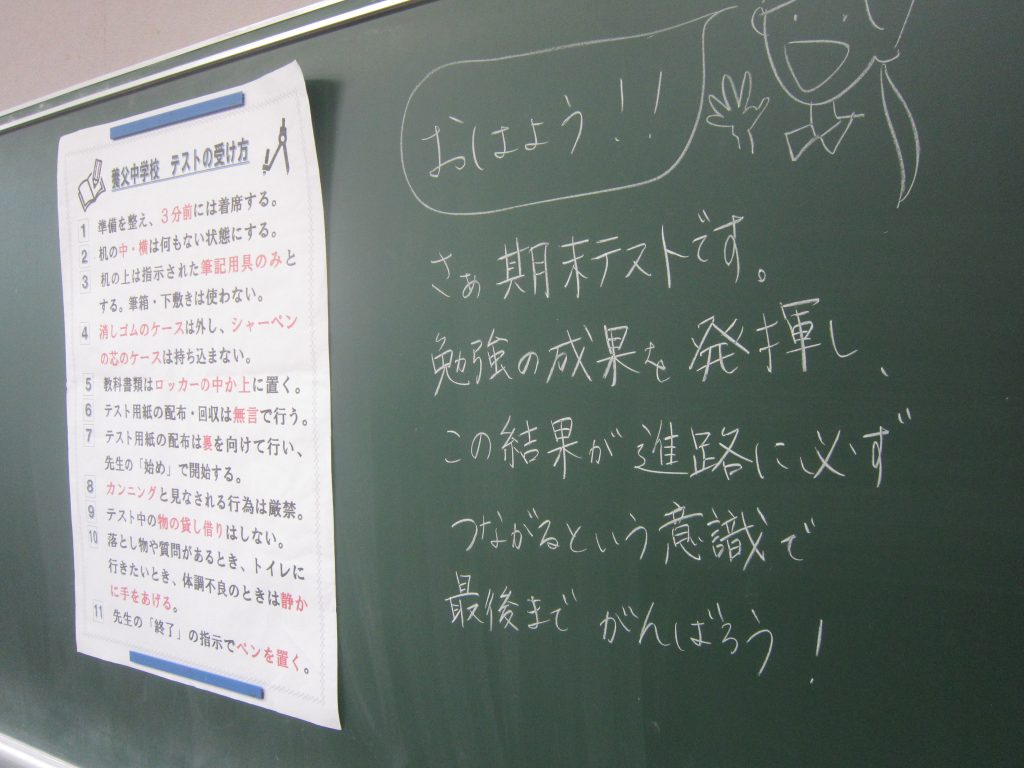 養父中学校 テストの受け方
1 準備を整え、3分前には着席する。
2 机の中・横は何もない状態にする。
3 机の上は指示された筆記用具のみと
する。筆箱・下敷きは使わない。
4 消しゴムのケースは外し、シャーペン
の芯のケースは持ち込まない。
5 教科書類はロッカーの中か上に置く。
6 テスト用紙の配布・回収は無言で行う。
7 テスト用紙の配布は裏を向けて行い、
先生の「始め」で開始する。
8 カンニングと見なされる行為は厳禁。
9 テスト中の物の貸し借りはしない。
10 落とし物や質問があるとき、トイレに
行きたいとき、体調不良のときは静か
に手をあげる。
11 先生の「終了」の指示でペンを置く。
おはよう!!
さぁ期末テストです。
勉強の成果を発揮し、
この結果が進路に必ず
つながるという意識で
最後まで がんばろう!